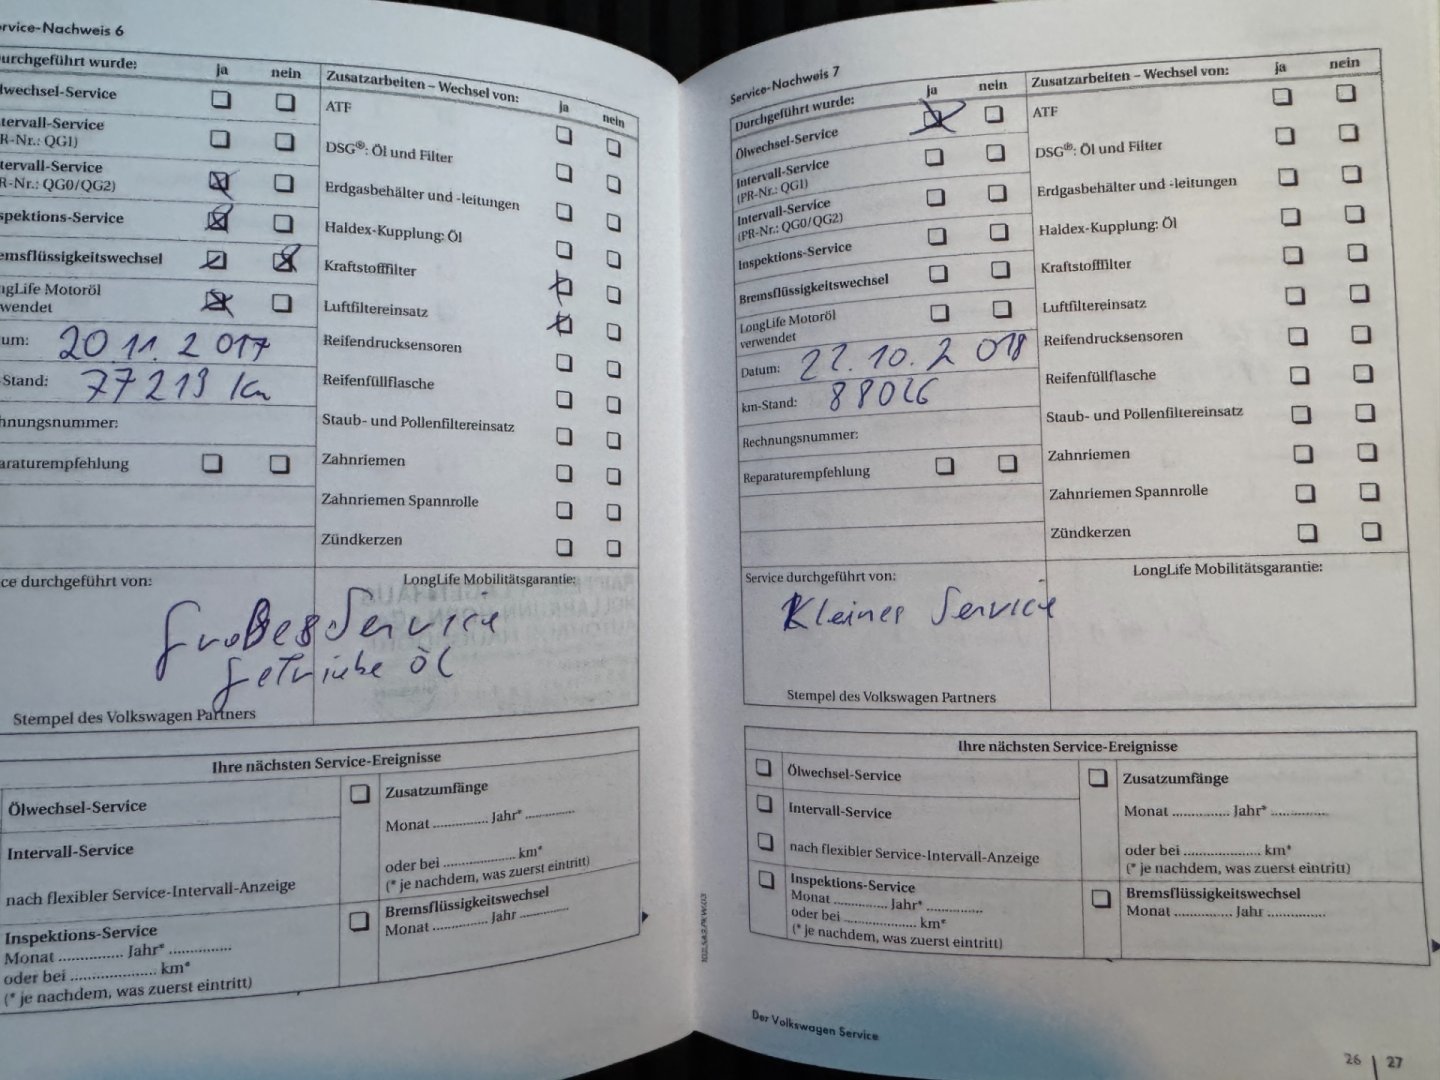 rvice-Nachweis 6
urchgeführt wurde:
ja
nein
lwechsel-Service
tervall-Service
R-Nr.: QG1)
tervall-Service
R-Nr.: QG0/QG2)
spektions-Service
emsflüssigkeitswechsel
ngLife Motoröl
wendet
um: 20.11.2017
Stand: 77213 km
hnungsnummer:
araturempfehlung
Zusatzarbeiten – Wechsel von:
ja
nein
ATF
DSG®: Öl und Filter
Erdgasbehälter und -leitungen
Haldex-Kupplung: Öl
Kraftstofffilter
Luftfiltereinsatz
Reifendrucksensoren
Reifenfüllflasche
Staub- und Pollenfiltereinsatz
Zahnriemen
Zahnriemen Spannrolle
Zündkerzen
ce durchgeführt von:
LongLife Mobilitätsgarantie:
Großes Service
Getriebe Öl
Stempel des Volkswagen Partners
Ihre nächsten Service-Ereignisse
Ölwechsel-Service
Intervall-Service
nach flexibler Service-Intervall-Anzeige
Inspektions-Service
Monat ............... Jahr* ...............
oder bei ..................... km*
(* je nachdem, was zuerst eintritt)
Zusatzumfänge
Monat ............. Jahr* ............
oder bei ................. km*
(* je nachdem, was zuerst eintritt)
Bremsflüssigkeitswechsel
Monat ............. Jahr ............
Service-Nachweis 7
Durchgeführt wurde:
ja
nein
Ölwechsel-Service
Intervall-Service
(PR-Nr.: QG1)
Intervall-Service
(PR-Nr.: QG0/QG2)
Inspektions-Service
Bremsflüssigkeitswechsel
LongLife Motoröl
verwendet
Datum: 22.10.2018
km-Stand: 88026
Rechnungsnummer:
Reparaturempfehlung
Zusatzarbeiten – Wechsel von:
ja
nein
ATF
DSG®: Öl und Filter
Erdgasbehälter und -leitungen
Haldex-Kupplung: Öl
Kraftstofffilter
Luftfiltereinsatz
Reifendrucksensoren
Reifenfüllflasche
Staub- und Pollenfiltereinsatz
Zahnriemen
Zahnriemen Spannrolle
Zündkerzen
Service durchgeführt von:
LongLife Mobilitätsgarantie:
Kleines Service
Stempel des Volkswagen Partners
Ihre nächsten Service-Ereignisse
Ölwechsel-Service
Intervall-Service
nach flexibler Service-Intervall-Anzeige
Inspektions-Service
Monat ............. Jahr* .............
oder bei ................. km*
(* je nachdem, was zuerst eintritt)
Zusatzumfänge
Monat ............. Jahr* .............
oder bei ................. km*
(* je nachdem, was zuerst eintritt)
Bremsflüssigkeitswechsel
Monat ............. Jahr .............
Der Volkswagen Service
26 | 27